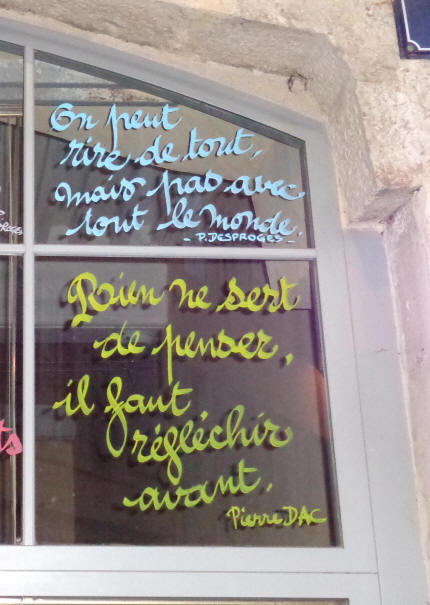 On peut
rire de tout,
mais pas avec
tout le monde.
- P. DESPROGES -
Rien ne sert
de penser,
il faut
réfléchir
avant.
Pierre DAC